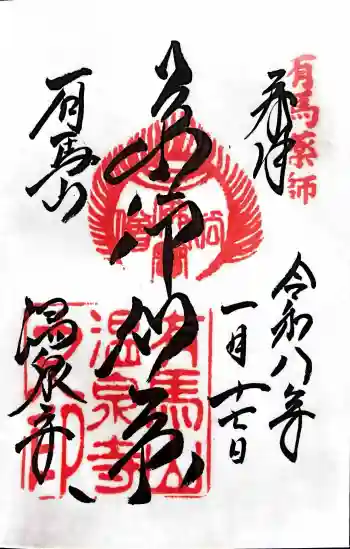 有馬薬師
奉拝
令和八年
一月十七日
薬師如来
有馬山
温泉寺
有馬山
温泉寺